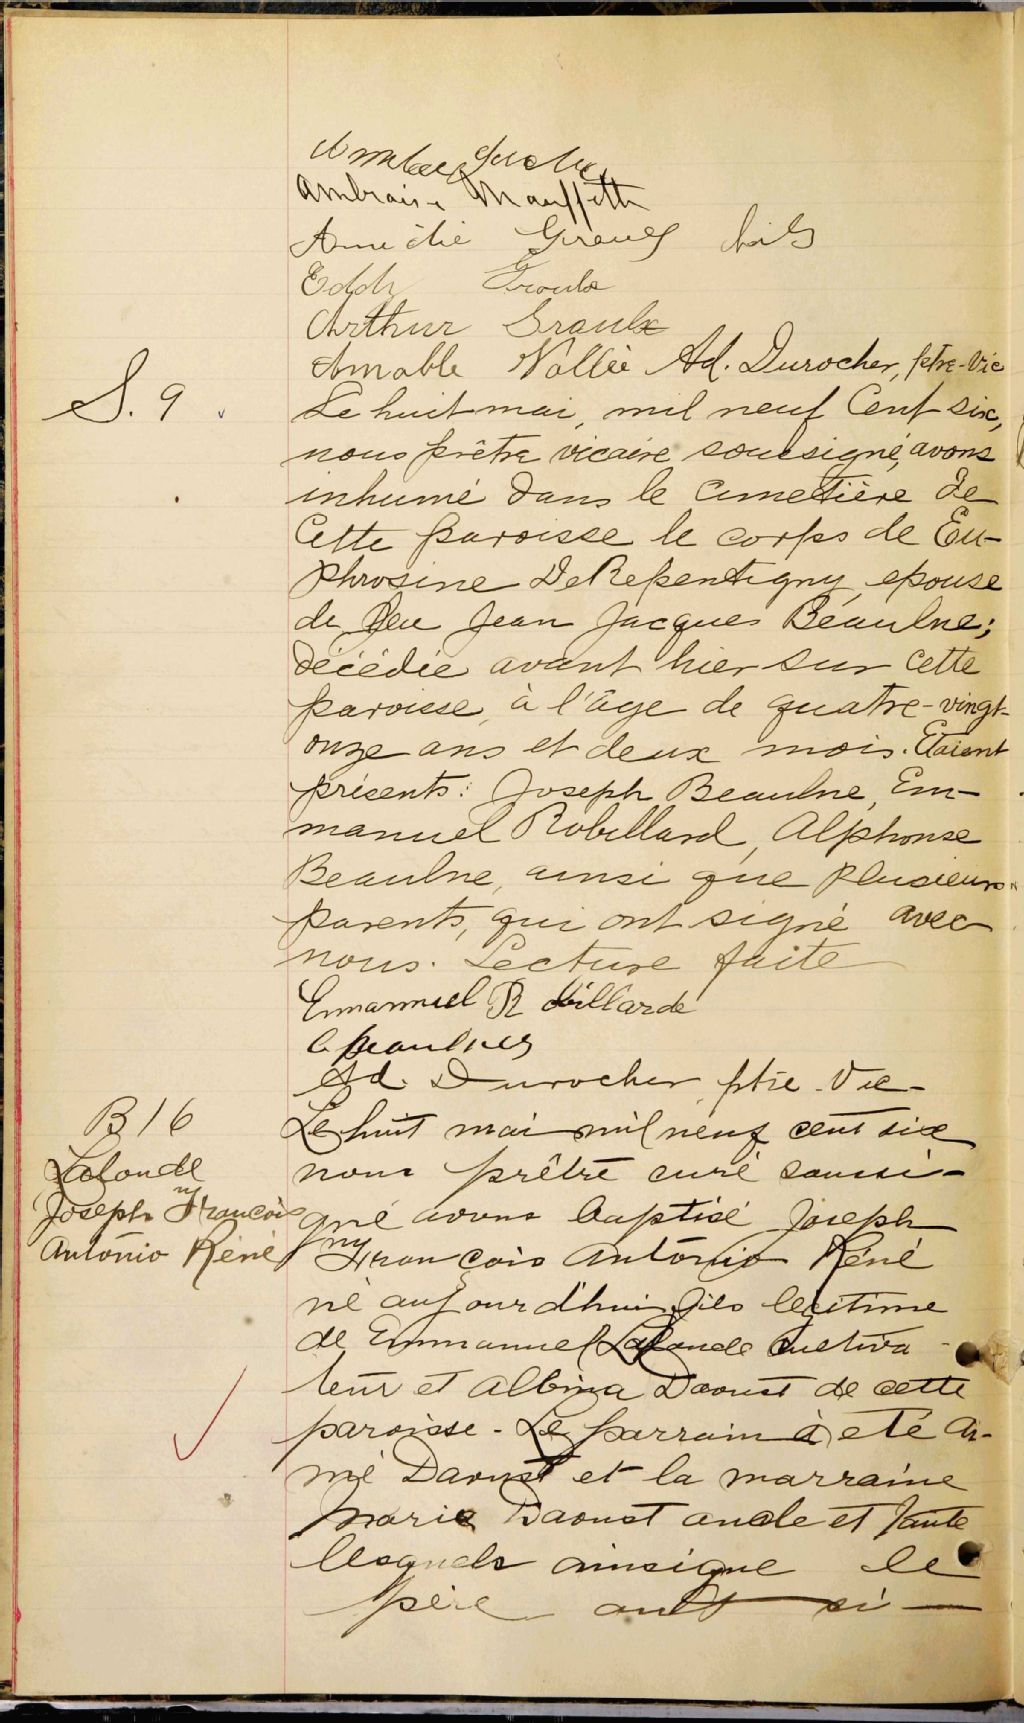 Ambroise Mauffette
Amédié
Eddy Groulx
Arthur Groulx
Amable Vallée Ad. Durocher, ptre-Vic
S. 9
Le huit mai, mil neuf Cent six,
nous prêtre vicaire soussigné, avons
inhumé dans le cimetière de
Cette paroisse le corps de Eu-
phrosine DeRepentigny, epouse
de feu Jean Jacques Beaulne;
décédée avant hier sur cette
paroisse, à l'âge de quatre-vingt-
onze ans et deux mois. Etaient
présents: Joseph Beaulne, Em-
manuel Robillard, Alphonse
Beaulne, ainsi que plusieurs
parents, qui ont signé avec
nous. Lecture faite
Emmanuel Robillarde
A Beaulnes
Ad. Durocher ptre-Vic-
B 16
Lalonde
Joseph François
Antonio Réné
Le huit mai mil neuf cent six
nous prêtre curé soussi-
gné avons baptisé Joseph
François Antonio Réné
né aujourd'hui fils legitime
de Emmanuel Lalonde Cultiva-
teur et Albina Daoust de cette
paroisse - Le parrain a été Ai-
mé Daoust et la marraine
Marie Daoust oncle et tante
lesquels ainsique le
père ont si-